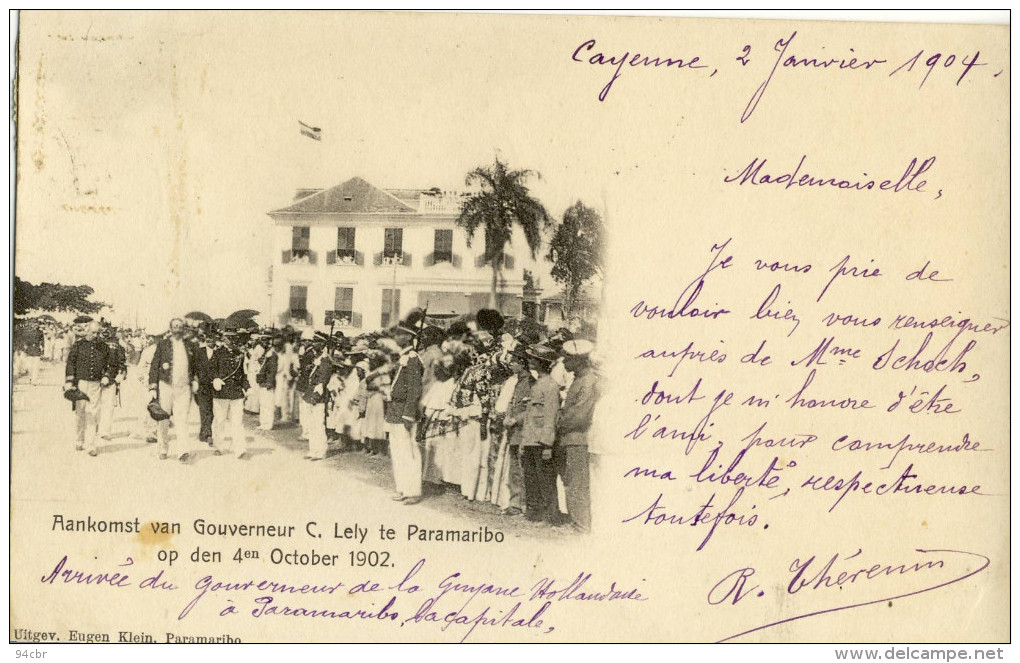 Cayenne, 2 Janvier 1904.
Mademoiselle,
Je vous prie de
vouloir bien vous renseigner
auprès de Mme Schoch,
dont je m'honore d'être
l'ami, pour comprendre
ma liberté, respectueuse
toutefois.
R. Thérenin
Aankomst van Gouverneur C. Lely te Paramaribo
op den 4en October 1902.
Arrivée du gouverneur de la Guyane Hollandaise
à Paramaribo, la capitale,
Uitgev. Eugen Klein, Paramaribo
94cbr
delcampe.net